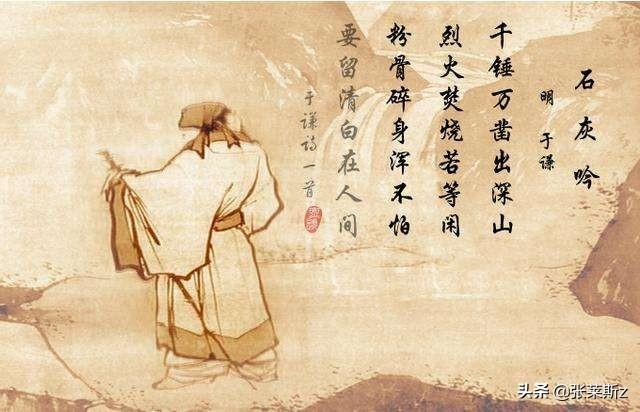 石灰吟
明 于谦
千锤万凿出深山
烈火焚烧若等闲
粉骨碎身浑不怕
要留清白在人间
于谦诗一首
头条 @张莱斯z